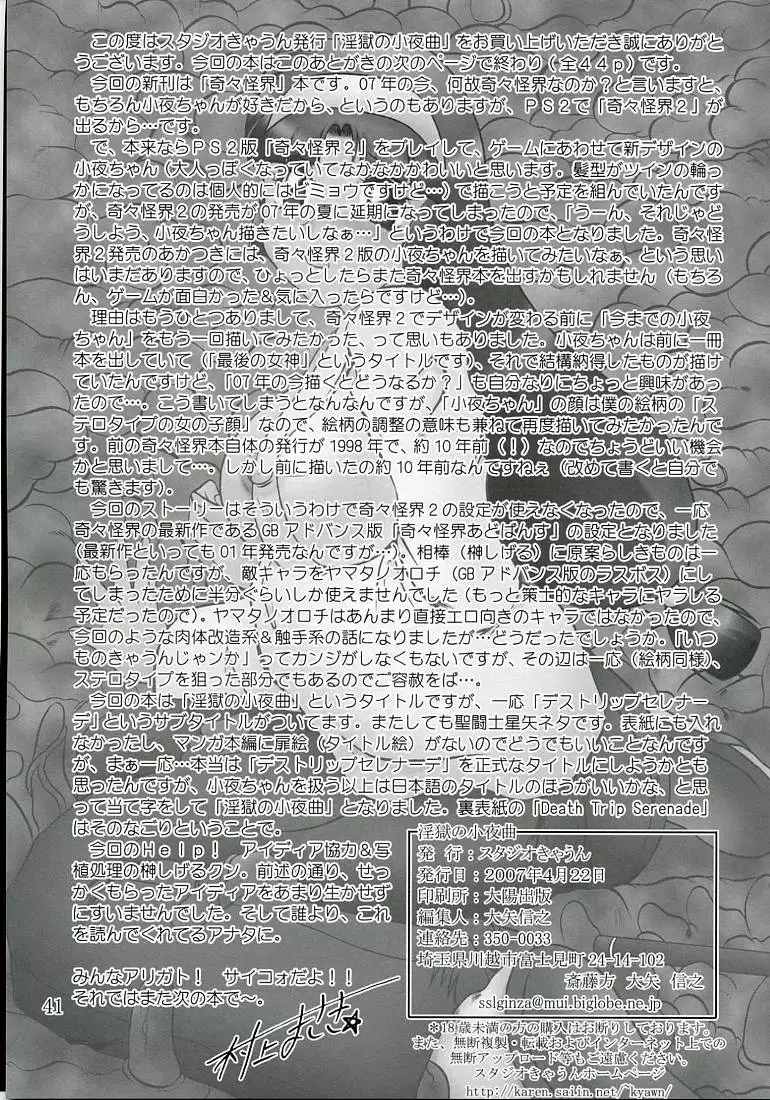 この度はスタジオきゃうん発行「淫獄の小夜曲」をお買い上げいただき誠にありがと
うございます。今回の本はこのあとがきの次のページで終わり(全44p)です。
今回の新刊は「奇々怪界」本です。07年の今、何故奇々怪界なのか?と言いますと、
もちろん小夜ちゃんが好きだから、というのもありますが、PS2で「奇々怪界2」が
出るから…です。
で、本来ならPS2版「奇々怪界2」をプレイして、ゲームにあわせて新デザインの
小夜ちゃん(大人っぽくなっていてなかなかかわいいと思います。髪型がツインの輪っ
かになってるのは個人的にはビミョウですけど…)で描こうと予定を組んでいたんです
が、奇々怪界2の発売が07年の夏に延期になってしまったので、「うーん、それじゃど
うしよう、小夜ちゃん描きたいしなぁ…」というわけで今回の本となりました。奇々怪
界2発売のあかつきには、奇々怪界2版の小夜ちゃんを描いてみたいなぁ、という思い
はいまだありますので、ひょっとしたらまた奇々怪界本を出すかもしれません(もちろ
ん、ゲームが面白かった&気に入ったらですけど…)。
理由はもうひとつありまして、奇々怪界2でデザインが変わる前に「今までの小夜
ちゃん」をもう一回描いてみたかった、って思いもありました。小夜ちゃんは前に一冊
本を出していて(「最後の女神」というタイトルです)、それで結構納得したものが描け
ていたんですけど、「07年の今描くとどうなるか?」も自分なりにちょっと興味があっ
たので…。こう書いてしまうとなんなんですが、「小夜ちゃん」の顔は僕の絵柄の「ス
テロタイプの女の子顔」なので、絵柄の調整の意味も兼ねて再度描いてみたかったんで
す。前の奇々怪界本自体の発行が1998年で、約10年前(!)なのでちょうどいい機会
かと思いまして…。しかし前に描いたの約10年前なんですねぇ(改めて書くと自分で
も驚きます)。
今回のストーリーはそういうわけで奇々怪界2の設定が使えなくなったので、一応
奇々怪界の最新作であるGBアドバンス版「奇々怪界あどばんす」の設定となりました
(最新作といっても01年発売なんですが…)。相棒(榊しげる)に原案らしきものは一
応もらったんですが、敵キャラをヤマタノオロチ(GBアドバンス版のラスボス)にし
てしまったために半分ぐらいしか使えませんでした(もっと策士的なキャラにヤラレる
予定だったので)。ヤマタノオロチはあんまり直接エロ向きのキャラではなかったので、
今回のような肉体改造系&触手系の話になりましたが…どうだったでしょうか。「いつ
ものきゃうんじゃンか」ってカンジがしなくもないですが、その辺は一応(絵柄同様)、
ステロタイプを狙った部分でもあるのでご容赦をば…。
今回の本は「淫獄の小夜曲」というタイトルですが、一応「デストリップセレナー
デ」というサブタイトルがついてます。またしても聖闘士星矢ネタです。表紙にも入れ
なかったし、マンガ本編に扉絵(タイトル絵)がないのでどうでもいいことなんです
が、まぁ一応…本当は「デストリップセレナーデ」を正式なタイトルにしようかとも
思ったんですが、小夜ちゃんを扱う以上は日本語のタイトルのほうがいいかな、と思
って当て字をして「淫獄の小夜曲」となりました。裏表紙の「Death Trip Serenade」
はそのなごりということで。
今回のHelp! アイディア協力&写
植処理の榊しげるクン。前述の通り、せっ
かくもらったアイディアをあまり生かせず
にすいませんでした。そして誰より、これ
を読んでくれてるアナタに。
みんなアリガト! サイコォだよ!!
それではまた次の本で〜。
村上まさき
41
淫獄の小夜曲
発 行:スタジオきゃうん
発行日:2007年4月22日
印刷所:大陽出版
編集人:大矢信之
連絡先:350-0033
埼玉県川越市富士見町24-14-102
斎藤方 大矢 信之
sslginza@mui.biglobe.ne.jp
*18歳未満の方の購入はお断りしております。
また、無断複製・転載およびインターネット上での
無断アップロード等もご遠慮ください。
スタジオきゃうんホームページ
http://karen.saiin.net/~kyawn/